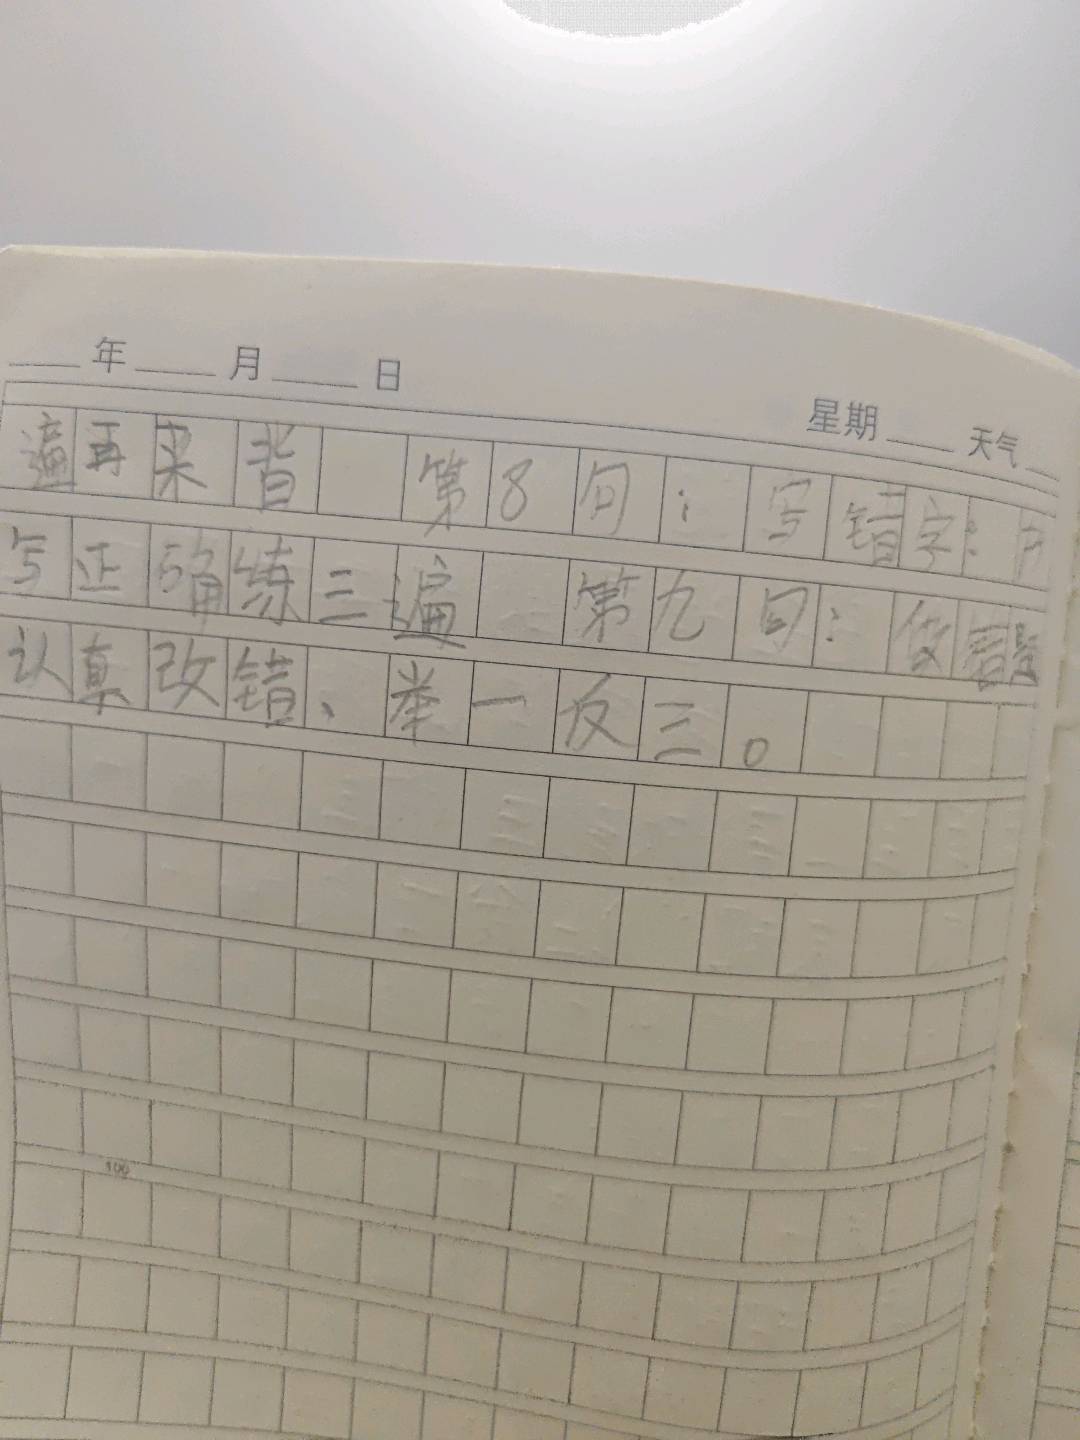 年 月 日
星期 天气
遍再来背 第8句：写错字：
写正确练三遍 第九句：做错题
认真改错、举一反三。
100